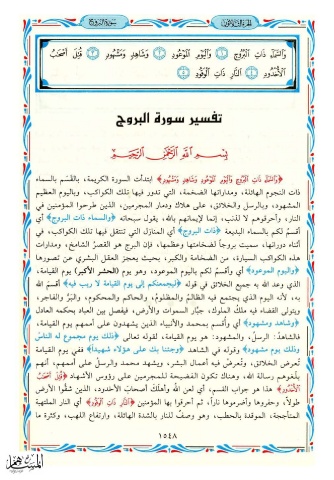 سورة البروج
الجزء الثلاثون
وَالسَّمَاءِ ذَاتِ الْبُرُوجِ ۝١ وَالْيَوْمِ الْمَوْعُودِ ۝٢ وَشَاهِدٍ وَمَشْهُودٍ ۝٣ قُتِلَ أَصْحَابُ
الْأُخْدُودِ ۝٤ النَّارِ ذَاتِ الْوَقُودِ ۝٥
تفسير سورة البروج
بِسْمِ اللَّهِ الرَّحْمَٰنِ الرَّحِيمِ
﴿وَالسَّمَاءِ ذَاتِ الْبُرُوجِ وَالْيَوْمِ الْمَوْعُودِ وَشَاهِدٍ وَمَشْهُودٍ﴾ ابتدأت السورة الكريمة، بالقَسَم بالسماء
ذات النجوم الهائلة، ومداراتها الضخمة، التي تدور فيها تلك الكواكب، وباليوم العظيم
المشهود، وبالرسل والخلائق، على هلاك ودمار المجرمين، الذين طرحوا المؤمنين في
النار، وأحرقوهم لا لذنب، إنما لإيمانهم بالله، يقول سبحانه ﴿والسماء ذات البروج﴾ أي
أقسم لكم بالسماء البديعة ﴿ذات البروج﴾ أي المنازل التي تنتقل فيها تلك الكواكب، في
أثناء دورانها، سميت بروجاً لضخامتها وعظمها، فإن البرج هو القصرُ الشامخ، ومدارات
هذه الكواكب السيارة، من الضخامة والكبر، بحيث يعجز العقل البشري عن تصورها
﴿واليوم الموعود﴾ أي وأقسم لكم باليوم الموعود، وهو يوم (الحشر الأكبر) يوم القيامة،
الذي وعد الله به جميع الخلائق في قوله ﴿ليجمعنكم إلى يوم القيامة لا ريب فيه﴾ أقسم الله
به، لأنه اليوم الذي يجتمع فيه الظالمُ والمظلومُ، والحاكم والمحكوم، والبَرُّ والفاجر،
ويتولى القضاء فيه ملكُ الملوك، جبَّار السموات والأرض، فيفصل بين العباد بحكمه العادل
﴿وشاهد ومشهود﴾ أي وأقسم بمحمد والأنبياء الذين يشهدون على أممهم يوم القيامة،
فالشاهدُ: الرسلُ، والمشهود: هو يوم القيامة، لقوله تعالى ﴿ذلك يوم مجموع له الناسُ
وذلك يوم مشهود﴾ وقوله في الشاهد ﴿وجئنا بك على هؤلاء شهيداً﴾ ففي يوم القيامة
تُعرض الخلائق، وتُعرضُ فيه أعمال البشر، ويشهد محمد والرسلُ على أممهم، أنهم
بلَّغوهم رسالة الله، وهناك تكون الفضيحة للمجرمين على رؤوس الأشهاد ﴿قُتِلَ أَصْحَابُ
الْأُخْدُودِ﴾ هذا هو جواب القسم، أي لعن الله وأهلكَ أصحابَ الأخدود، الذين شقُّوا الأرض
طولاً، وحفروها وأضرموها ناراً، ثم أحرقوا بها المؤمنين ﴿النَّارِ ذَاتِ الْوَقُودِ﴾ أي النار الملتهبة
المتأججة، الموقدة بالحطب، وهو وصفٌ للنار بالشدة الهائلة، وارتفاع اللهب، وكثرة ما
١٥٤٨